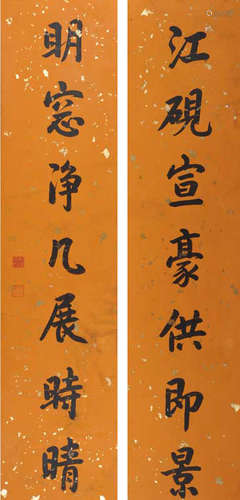 江硯宣豪供即景
明窓净几展時晴